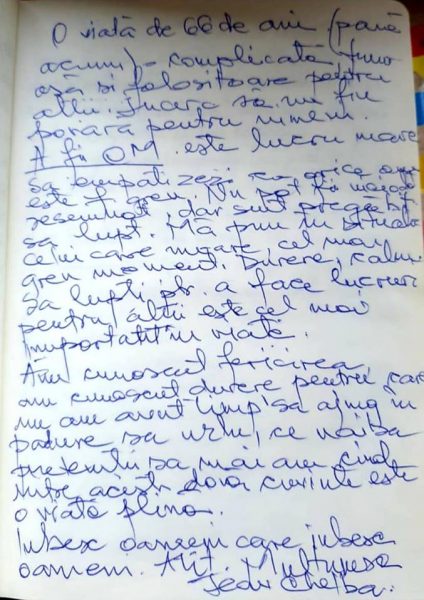 O viață de 66 de ani (până
acum) - complicată, frumo
asă și folositoare pentru
alții. Încerc să nu fiu
povară pentru nimeni.
A fi OM este lucru mare
să empatizezi cu orice om
este f. greu. Nu pot fi
resemnat, dar sunt pregătit
să lupt. Mă pun în situația
celui care moare, cel mai
greu moment. Durere, calm
să lupți pt. a face lucruri
pentru alții este cel mai
important în viață.
Am cunoscut fericirea,
am cunoscut durere pentru care
nu am avut timp să ajung în
pădure să urlu, ce naiba
să mai am
aceste două cuvinte este
o viață plină.
Iubesc oamenii care iubesc
oamenii. Atât. Mulțumesc